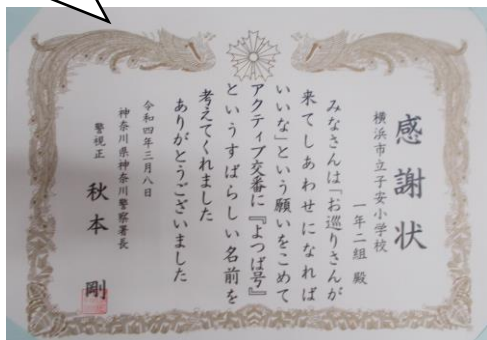 感謝状
横浜市立子安小学校
一年二組 殿
みなさんは「お巡りさんが
来てしあわせになれば
いいな」という願いをこめて
アクティブ交番に『よつば号』
というすばらしい名前を
考えてくれました
ありがとうございました
令和四年三月八日
神奈川県神奈川警察署長
警視正 秋本 剛